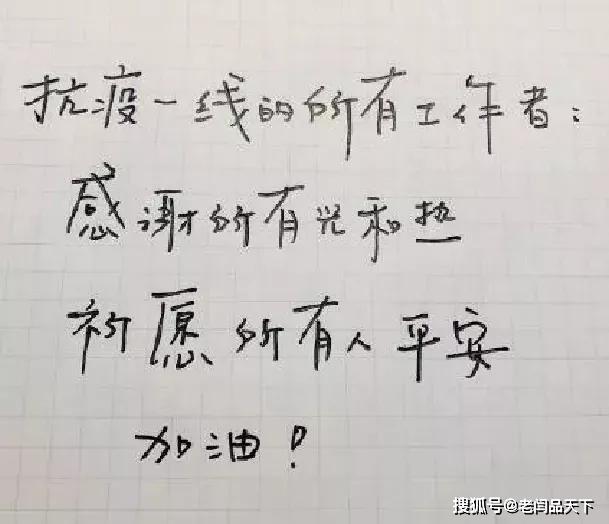 抗疫一线的所有工作者：
感谢所有光和热
祈愿所有人平安
加油！
搜狐号@老闫品天下